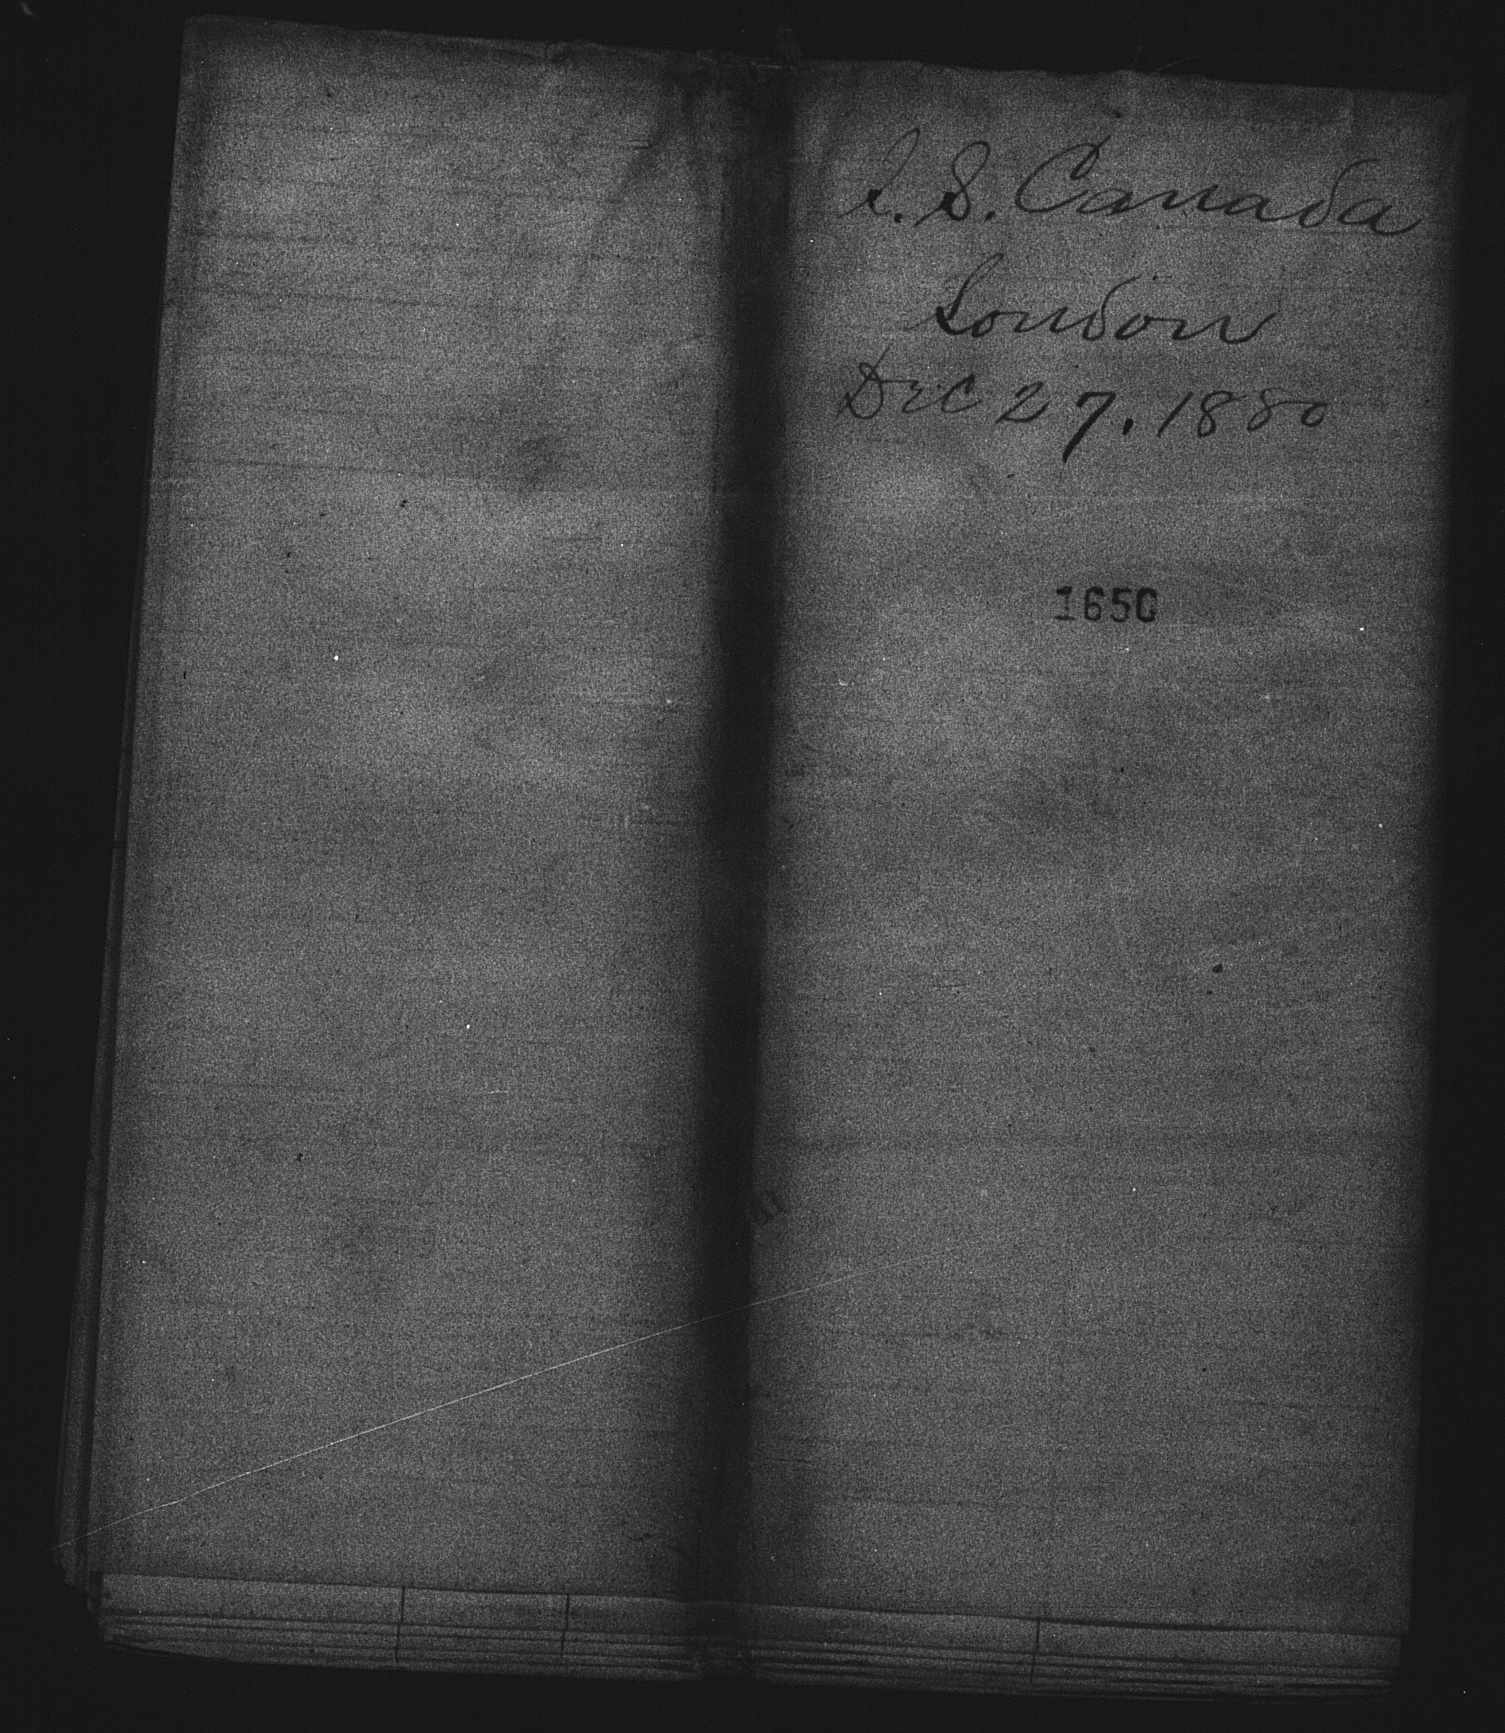 S. S. Canada
London
Dec 27. 1880
1650